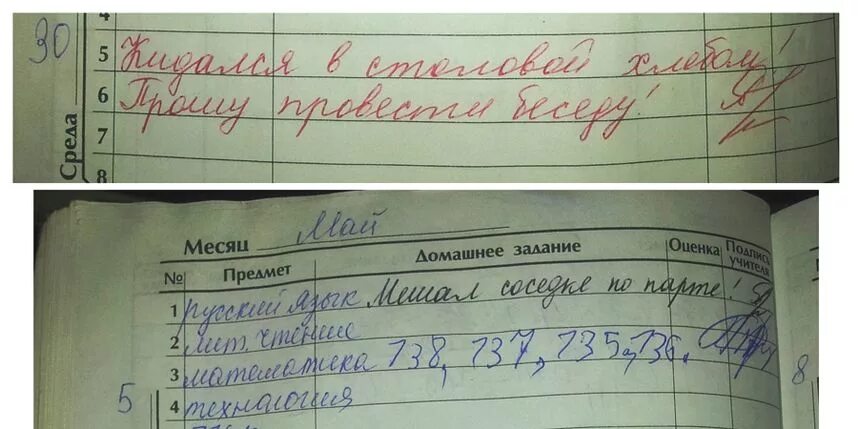 4
30
5 Кидался в столовой хлебом!
6 Прошу провести беседу!
Среда
7
8
Месяц Май
№ Предмет Домашнее задание Оценка Подпись учителя
1 русский язык Мешал соседке по парте!
2 лит. чтение
3 математика 138, 137, 135, 136.
5
4 технология
8